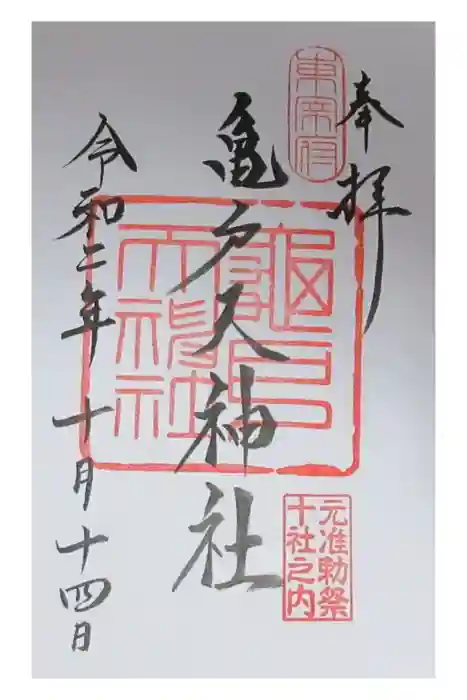 奉拝
東帝府
亀戸天神社
龜戸
天神社
元准勅祭
十社之内
令和二年 十月十四日